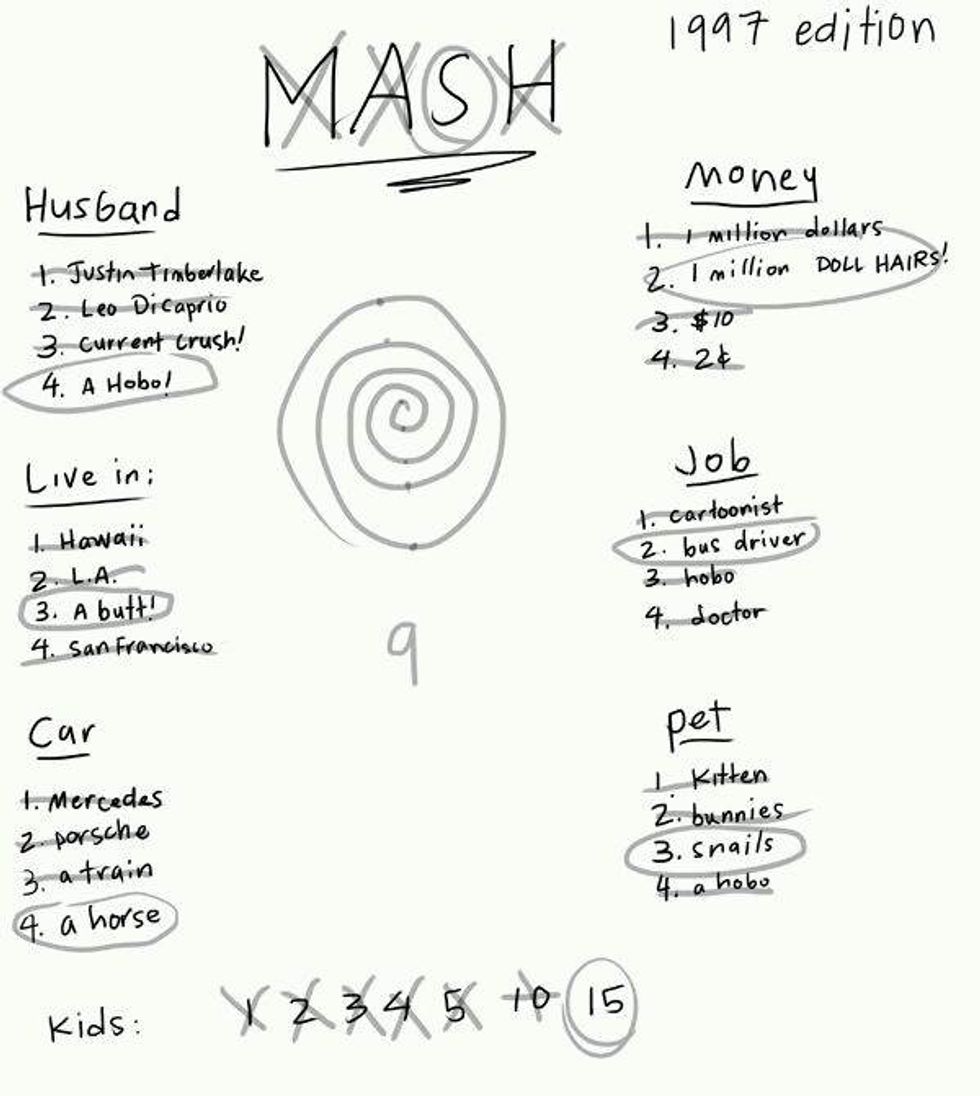 1997 edition
MASH
Husband
1. Justin Timberlake
2. Leo Dicaprio
3. current crush!
4. A Hobo!
Live in:
1. Hawaii
2. L.A.
3. A butt!
4. San Francisco
Car
1. Mercedes
2. porsche
3. a train
4. a horse
Money
1. 1 million dollars
2. 1 million DOLL HAIRS!
3. $10
4. 2¢
Job
1. cartoonist
2. bus driver
3. hobo
4. doctor
pet
1. Kitten
2. bunnies
3. snails
4. a hobo
9
Kids: 1 2 3 4 5 10 15